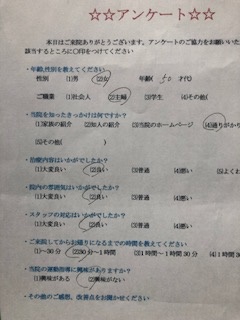 ☆☆アンケート☆☆
本日はご来院ありがとうございます。アンケートのご協力をお願いいた
該当するところに○印をつけてください
・年齢,性別を教えてください
性別 (1)男 (2)女 年齢( 50 才代)
ご職業 (1)社会人 (2)主婦 (3)学生 (4)その他(
・当院を知ったきっかけは何ですか?
(1)家族の紹介 (2)知人の紹介 (3)当院のホームページ (4)通りがかり
(5)その他( )
・治療内容はいかがでしたか?
(1)大変良い (2)良い (3)普通 (4)悪い (5)よくわ
・院内の雰囲気はいかがでしたか?
(1)大変良い (2)良い (3)普通 (4)悪い
・スタッフの対応はいかがでしたか?
(1)大変良い (2)良い (3)普通 (4)悪い
・ご来院してからお帰りになるまでの時間を教えてください
(1)~30分 (2)30分~1時間 (3)1時間~1時間30分 (4)1時間30
・当院の運動指導に興味がありますか?
(1)興味がある (2)興味がない
・その他のご感想、改善点をお聞かせください